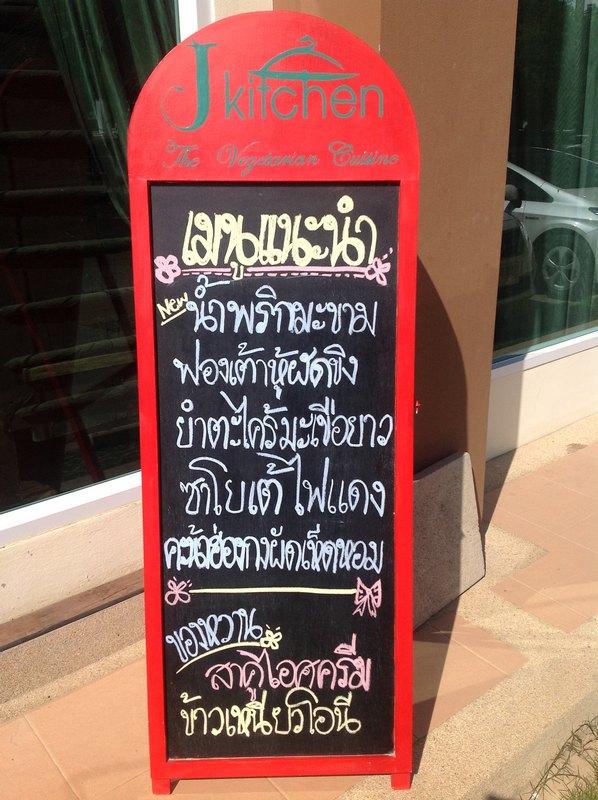 J kitchen
The Vegetarian Cuisine
เมนูแนะนำ
New น้ำพริกมะขาม
ฟองเต้าหู้ผัดขิง
ยำตะไคร้มะเขือยาว
ซาโยเต้ไฟแดง
คะน้าฮ่องกงผัดเห็ดหอม
ของหวาน
สาคูไอศครีม
ข้าวเหนียวโอนี